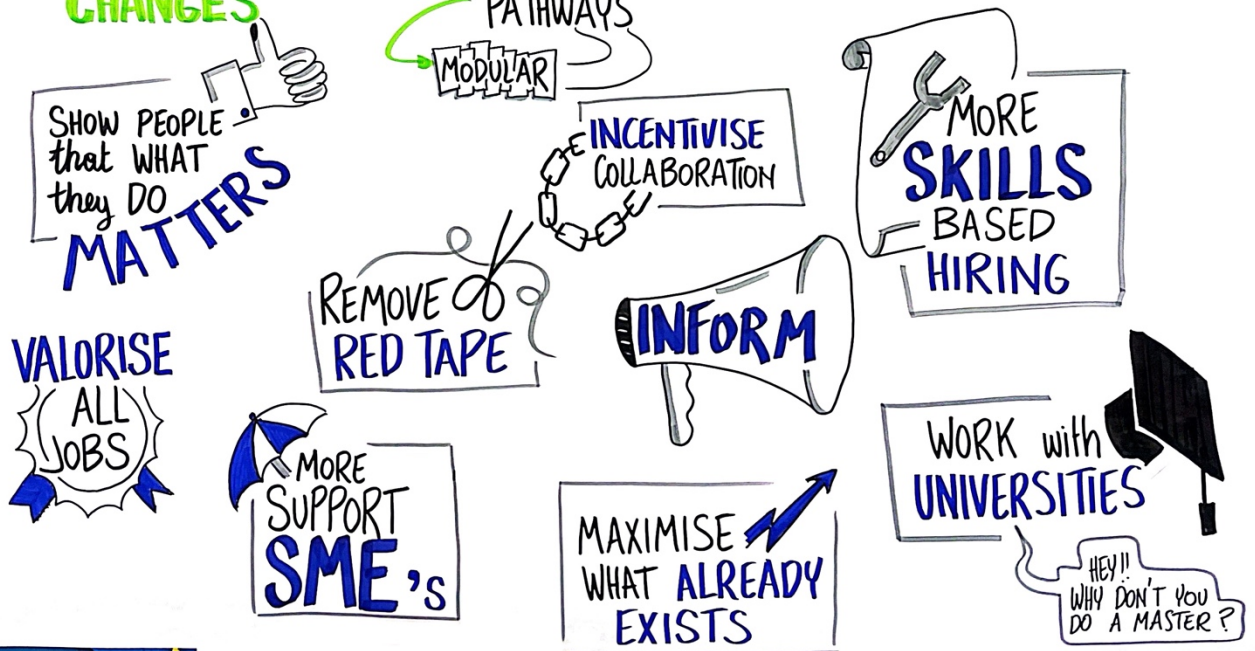 CHANGES
PATHWAYS
MODULAR
SHOW PEOPLE
that WHAT
they DO
MATTERS
INCENTIVISE
COLLABORATION
MORE
SKILLS
BASED
HIRING
REMOVE
RED TAPE
INFORM
VALORISE
ALL
JOBS
MORE
SUPPORT
SME's
MAXIMISE
WHAT ALREADY
EXISTS
WORK with
UNIVERSITIES
HEY!!
WHY DON'T YOU
DO A MASTER?